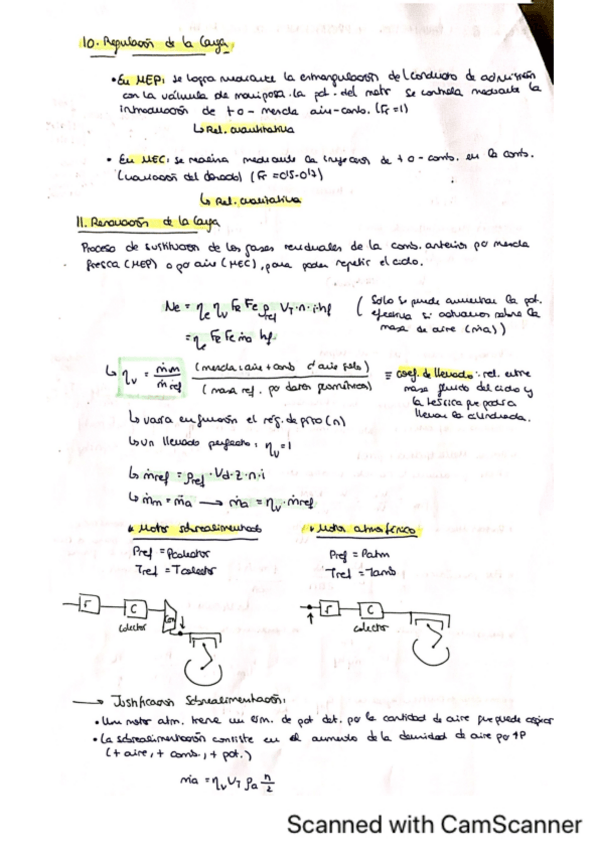 10. Regulación de la Carga
• En MEP: se logra mediante la estrangulación del conducto de admisión
con la válvula de mariposa. la pot. del motor se controla mediante la
introducción de + o - mezcla aire-comb. (Fr=1)
↳ Rel. cuantitativa
• En MEC: se realiza mediante la inyección de + o - comb. en la comb.
(variación del dosado) (Fr =0.5-0.7)
↳ Rel. cualitativa
11. Renovación de la Carga
Proceso de sustitución de los gases residuales de la comb. anterior por mezcla
fresca (MEP) o por aire (MEC), para poder repetir el ciclo.
Ne = ηe ηv FR Fe ρref VT·n·i·hf
( Solo se puede aumentar la pot.
efectiva si actuamos sobre la
masa de aire (ṁa) )
= ηe FR Fe ṁa hf
↳ ηv = ṁm / ṁref (mezcla: aire + comb o aire solo) / (masa ref. por datos geométricos)
≡ coef. de llenado: rel. entre
masa fluido del ciclo y
la teórica que podría
llenar la cilindrada.
↳ varía en función el rég. de giro (n)
↳ un llenado perfecto: ηv=1
↳ ṁref = ρref · Vd·z·n·i
↳ ṁm = ṁa → ṁa = ηv·ṁref
* Motor sobrealimentado
Pref = Pcolector
Tref = Tcolector
* Motor atmosférico
Pref = Patm
Tref = Tamb
F C Com
colector
F C
colector
→ Justificación Sobrealimentación:
• Un motor atm. tiene un lím. de pot det. por la cantidad de aire que puede aspirar
• La sobrealimentación consiste en el aumento de la densidad de aire por ↑P
(+ aire, + comb., + pot.)
ṁa = ηv VT ρa n/2
Scanned with CamScanner